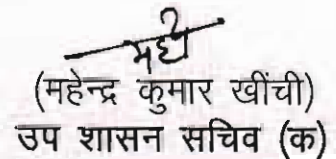 (महेन्द्र कुमार खींची)
उप शासन सचिव (क)